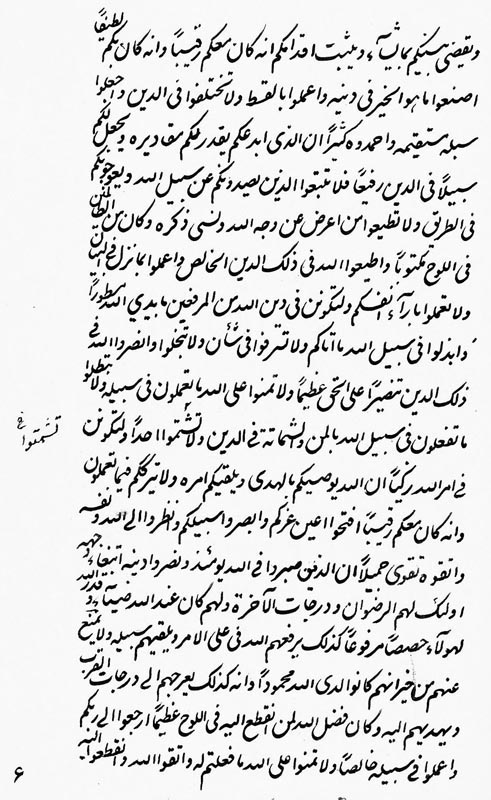 ويقضي بينكم بما يشآء ويثبت اقدامكم انه كان معكم رقيباً وانه كان بكم لطيفاً
اصنعوا ما هو الخير في دينه واعملوا بالقسط ولا تختلفوا في الدين واجعلوا
سبله مستقيمه واحمدوه كثيراً ان الذي ابدعكم بقدر لكم مقاديره ويجعل لكم
سبيلاً في الدين رفيعاً فلا تتبعوا الذين يصدونكم عن سبل الله ويعوجونكم
في الطريق ولا تطيعوا من اعرض عن وجه الله ونسي ذكره وكان من الظالمين
في اللوح مكتوباً واطيعوا الله في ذلك الدين الخالص واعملوا بما نزل في البيان
ولا تعملوا بارآء انفسكم ولتكونن في دين الله من المرفعين بايدي الله مسطوراً
وابذلوا في سبيل الله ما اتاكم ولا تسرفوا في شأن ولا تبخلوا وانصروا الله في
ذلك الدين تنصيراً على الحق عظيماً ولا تمنوا على الله ما تعملون في سبيله ولا تبطلوا
ما تفعلون في سبيل الله بالمن والشماتة في الدين ولا تشتموا احداً ولتكونن
تشمتوا خ
في امر الله زكياً ان الله يوصيكم بالهدى ويلقيكم امره ولا يترككم فيما تعملون
وانه كان معكم رقيباً افتحوا اعين عزكم وابصروا سبيلكم وانظروا الى الله ونفسه
واتقوه تقوى جميلاً ان الذين صبروا في الله يومئذ ونصروا دينه ابتغاء وجهه
اولئك لهم الرضوان ودرجات الآخرة ولهم كان عند الله ضيآء وقدر الله
لهولاء حصصاً مرفوعاً كذلك يرفعهم الله في على الامر ويلقيهم سبيله ولا يمنع
عنهم من خير انهم كانوا لدى الله محموداً وانه كذلك يعرجهم الى درجات القرب
ويهديهم اليه وكان فضل الله لمن انقطع اليه في اللوح عظيماً ارجعوا الى ربكم
واعملوا في سبيله خالصاً ولا تمنوا على الله ما فعلتم له واتقوا الله وانقطعوا اليه
۶